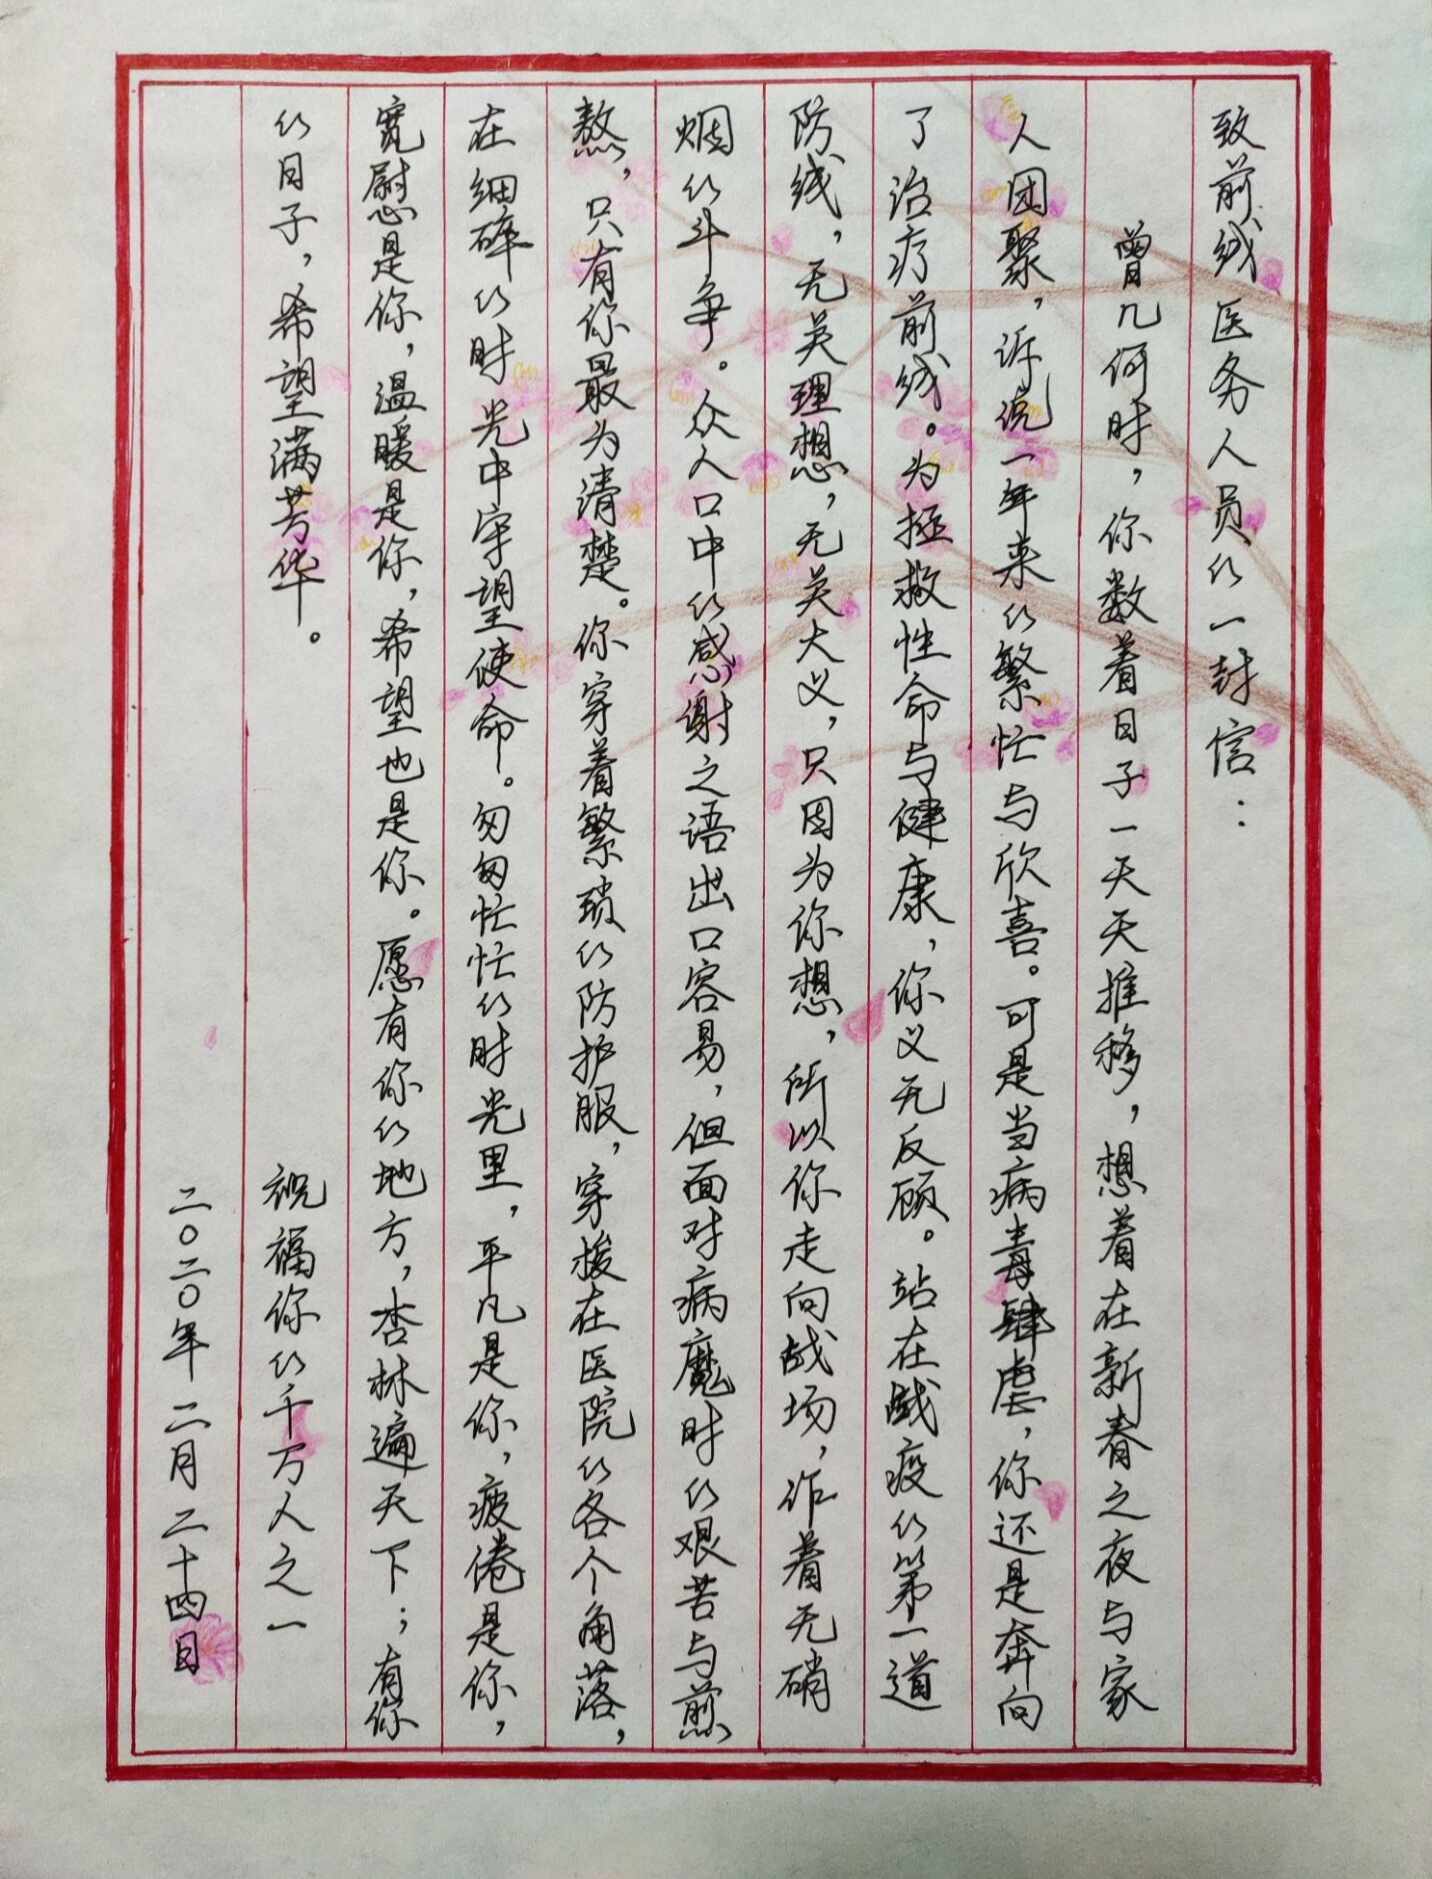 致前线医务人员的一封信：
曾几何时，你数着日子一天天推移，想着在新春之夜与家
人团聚，诉说一年来的繁忙与欣喜。可是当病毒肆虐，你还是奔向
了治疗前线。为拯救性命与健康，你义无反顾。站在战疫的第一道
防线，无关理想，无关大义，只因为你想，所以你走向战场，作着无硝
烟的斗争。众人口中的感谢之语出口容易，但面对病魔时的艰苦与煎
熬，只有你最为清楚。你穿着繁琐的防护服，穿梭在医院的各个角落，
在细碎的时光中守望使命。匆匆忙忙的时光里，平凡是你，疲倦是你，
宽慰是你，温暖是你，希望也是你。愿有你的地方，杏林遍天下；有你
的日子，希望满芳华。
祝福你的千万人之一
二〇二〇年二月二十四日